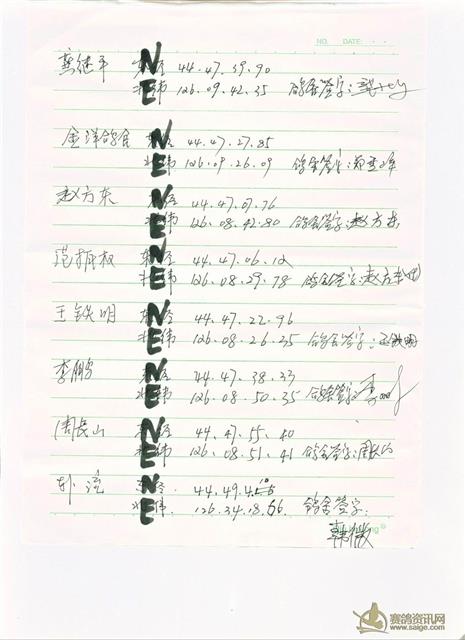 NO. DATE: · ·
龚继平 东经 N 44.47.39.90
北纬 E 126.09.42.35 鸽舍签字:
金洋鸽舍 东经 N 44.47.27.85
北纬 E 126.09.26.09 鸽舍签字:
赵方东 东经 N 44.47.07.76
北纬 E 126.08.42.80 鸽舍签字:赵方东
范振权 东经 N 44.47.06.12
北纬 E 126.08.29.78 鸽舍签字:赵方东
王铁明 东经 N 44.47.22.96
北纬 E 126.08.26.25 鸽舍签字:王铁明
李鹏 东经 N 44.47.38.33
北纬 E 126.08.50.35 鸽舍签字:李
周长山 东经 N 44.47.55.40
北纬 E 126.08.51.41 鸽舍签字:周长山
东经 N 44.49.4
北纬 E 126.34.18.66 鸽舍签字:
韩微
赛鸽资讯网
www.saige.com